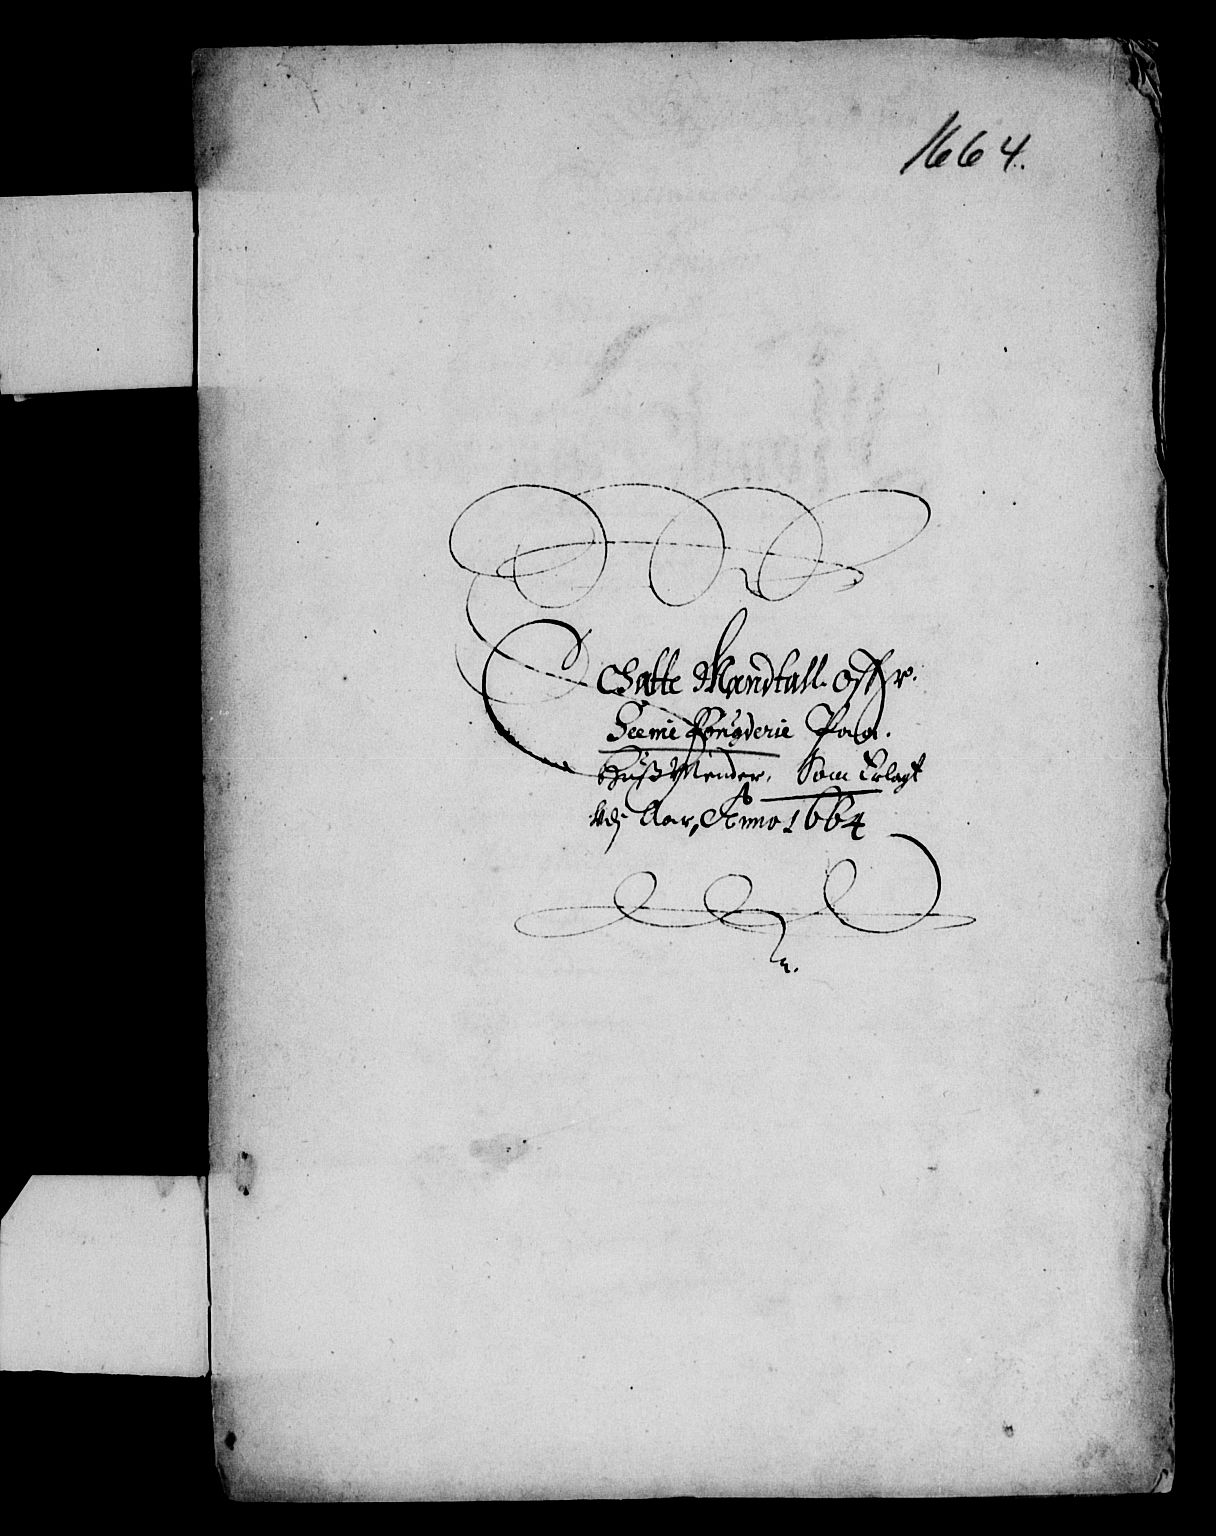 1664.
Schatte Mandtall. offr.
Seemi Fougderie Paa.
HussMender, Som Erlagt
Udj Aar, Anno 1664